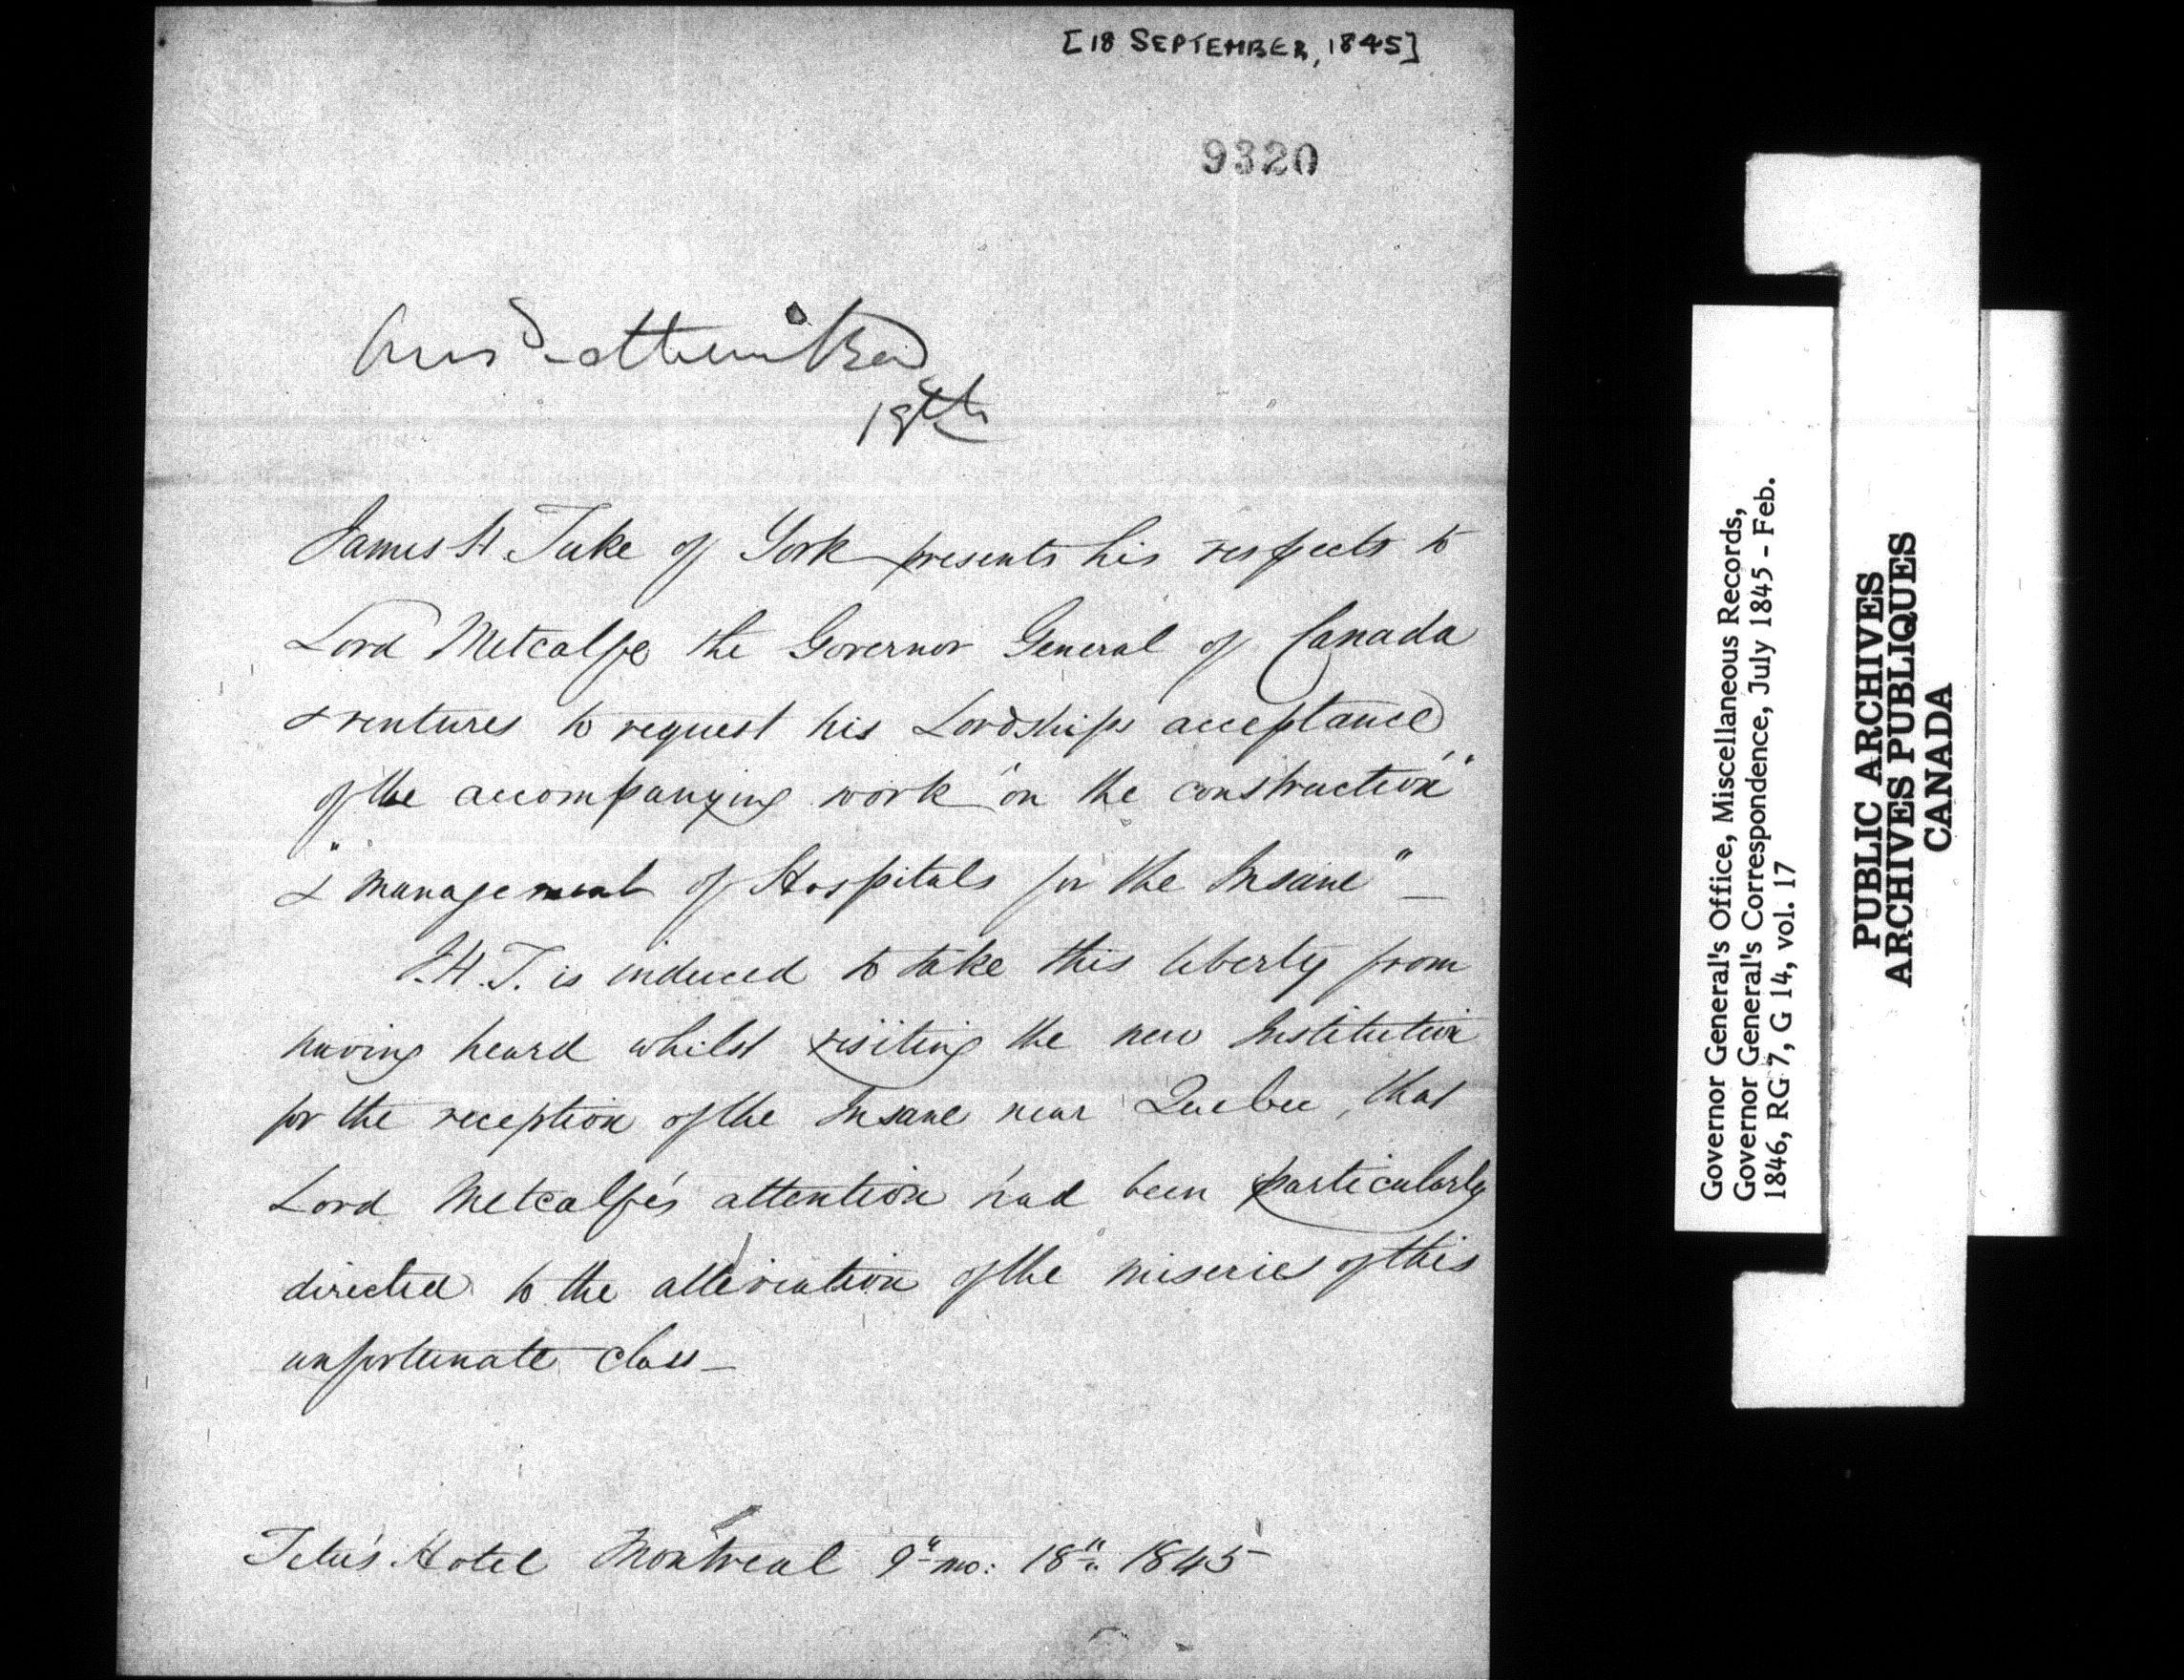 [18 SEPTEMBER, 1845]
9320
18th
James H Tuke of York presents his respects to
Lord Metcalfe the Governor General of Canada
& ventures to request his Lordships acceptance
of the accompanying work "on the construction"
& "management of Hospitals for the Insane" —
J.H.T. is induced to take this liberty from
having heard whilst visiting the new Institution
for the reception of the Insane near Quebec, that
Lord Metcalfe's attention had been particularly
directed to the alleviation of the miseries of this
unfortunate class —
Tetu's Hotel Montreal 9" mo: 18" 1845
Governor General's Office, Miscellaneous Records,
Governor General's Correspondence, July 1845 - Feb.
1846, RG 7, G 14, vol. 17
PUBLIC ARCHIVES
ARCHIVES PUBLIQUES
CANADA